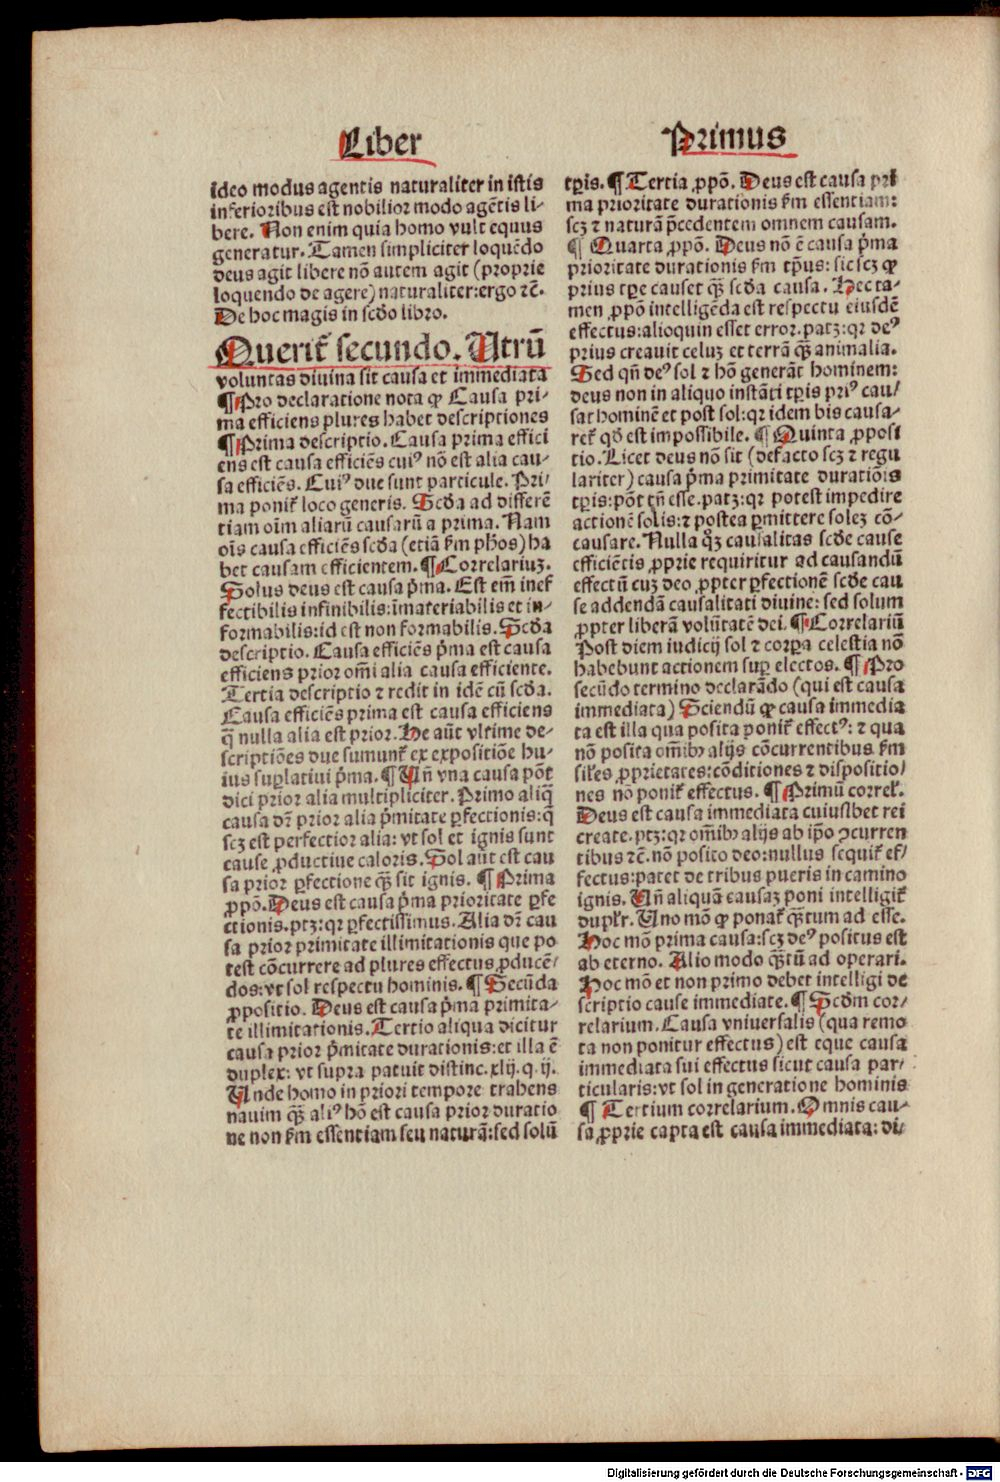 Liber
Primus
ideo modus agentis naturaliter in istis
inferioribus est nobilior modo agētis li⸗
bere. Non enim quia homo vult equus
generatur. Tamen simpliciter loquēdo
deus agit libere nō autem agit (proprie
loquendo de agere) naturaliter: ergo ⁊c̄.
De hoc magis in scd̄o libro.
Querit᷑ secundo. Utrū
voluntas diuina sit causa et immediata
¶ Pro declaratione nota ꝙ Causa pri⸗
ma efficiens plures habet descriptiones
¶ Prima descriptio. Causa prima effici
ens est causa efficiēs cuiꝰ nō est alia cau⸗
sa efficiēs. Cuiꝰ due sunt particule. Pri⸗
ma ponit᷑ loco generis. Scd̄a ad differē
tiam oīm aliarū causarū a prima. Nam
oīs causa efficiēs scd̄a (etiā ẜm ph̄os) ha
bet causam efficientem. ¶ Correlariuꝫ.
Solus deus est causa p̄ma. Est em̄ inef
fectibilis infinibilis: īmateriabilis et in⸗
formabilis: id est non formabilis. Scd̄a
descriptio. Causa efficiēs p̄ma est causa
efficiens prior om̄i alia causa efficiente.
Tertia descriptio ⁊ redit in idē cū scd̄a.
Causa efficiēs prima est causa efficiens
q̄ nulla alia est prior. He aūt vltime de⸗
scriptiōes due sumunt᷑ ex expositiōe hu⸗
ius suꝑlatiui p̄ma. ¶ Un̄ vna causa pōt
dici prior alia multipliciter. Primo aliq̄
causa dr̄ prior alia p̄mitate ꝑfectionis: q̄
scꝫ est perfectior alia: vt sol et ignis sunt
cause ꝓductiue caloris. Sol aūt est cau
sa prior ꝑfectione qꝫ̄ sit ignis. ¶ Prima
ꝓpō. Deus est causa p̄ma prioritate ꝑfe
ctionis. ptꝫ: qr ꝑfectissimus. Alia dr̄ cau
sa prior primitate illimitationis que po
test cōcurrere ad plures effectus ꝓducē⸗
dos: vt sol respectu hominis. ¶ Secūda
ꝓpositio. Deus est causa p̄ma primita⸗
te illimitationis. Tertio aliqua dicitur
causa prior p̄mitate durationis: et illa ē
duplex: vt supra patuit distinc. xlij. q. ij.
Unde homo in priori tempore trahens
nauim qꝫ̄ aliꝰ hō est causa prior duratio
ne non ẜm essentiam seu naturā: sed solū
tꝑis. ¶ Tertia ꝓpō. Deus est causa pri
ma prioritate durationis ẜm essentiam:
scꝫ ⁊ naturā p̄cedentem omnem causam.
¶ Quarta ꝓpō. Deus nō ē causa p̄ma
prioritate durationis ẜm tp̄us: sic scꝫ ꝙ
prius tꝑe causet qꝫ̄ scd̄a causa. Hec ta⸗
men ꝓpō intelligēda est respectu eiusdē
effectus: alioquin esset error. patꝫ: qr deꝰ
prius creauit celuꝫ et terrā qꝫ̄ animalia.
Sed qn̄ deꝰ sol ⁊ hō generāt hominem:
deus non in aliquo instāti tꝑis priꝰ cau⸗
sat hominē et post sol: qr idem bis causa⸗
ret᷑ qd̄ est impossibile. ¶ Quinta ꝓposi
tio. Licet deus nō sit (de facto scꝫ ⁊ regu
lariter) causa p̄ma primitate duratiōis
tꝑis: pōt tn̄ esse. patꝫ: qr potest impedire
actionē solis: ⁊ postea ꝑmittere soleꝫ cō⸗
causare. Nulla qꝫ̄ causalitas scd̄e cause
efficiētis ꝓprie requiritur ad causandū
effectū cuꝫ deo ꝓpter ꝑfectionē scd̄e cau
se addendā causalitati diuine: sed solum
ꝓpter liberā volūtatē dei. ¶ Correlariū
Post diem iudicij sol ⁊ corꝑa celestia nō
habebunt actionem suꝑ electos. ¶ Pro
secūdo termino declarādo (qui est causa
immediata) Sciendū ꝙ causa immedia
ta est illa qua posita ponit᷑ effectꝰ: ⁊ qua
nō posita om̄ibꝫ alijs cōcurrentibus ẜm
sil̄es ꝓprietates: cōditiones ⁊ dispositio⸗
nes nō ponit᷑ effectus. ¶ Primū correl̄.
Deus est causa immediata cuiuslibet rei
create. ptꝫ: qr om̄ibꝫ alijs ab ip̄o ↄcurren
tibus ⁊c̄. nō posito deo: nullus sequit᷑ ef⸗
fectus: patet de tribus pueris in camino
ignis. Un̄ aliquā causaꝫ poni intelligit᷑
dupl̄r. Uno mō ꝙ ponat᷑ qꝫ̄tum ad esse.
Hoc mō prima causa: scꝫ deꝰ positus est
ab eterno. Alio modo qꝫ̄tū ad operari.
Hoc mō et non primo debet intelligi de
scriptio cause immediate. ¶ Scd̄m cor⸗
relarium. Causa vniuersalis (qua remo
ta non ponitur effectus) est eque causa
immediata sui effectus sicut causa par⸗
ticularis: vt sol in generatione hominis
¶ Tertium correlarium. Omnis cau⸗
sa ꝓprie capta est causa immediata: di⸗
Digitalisierung gefördert durch die Deutsche Forschungsgemeinschaft - DFG